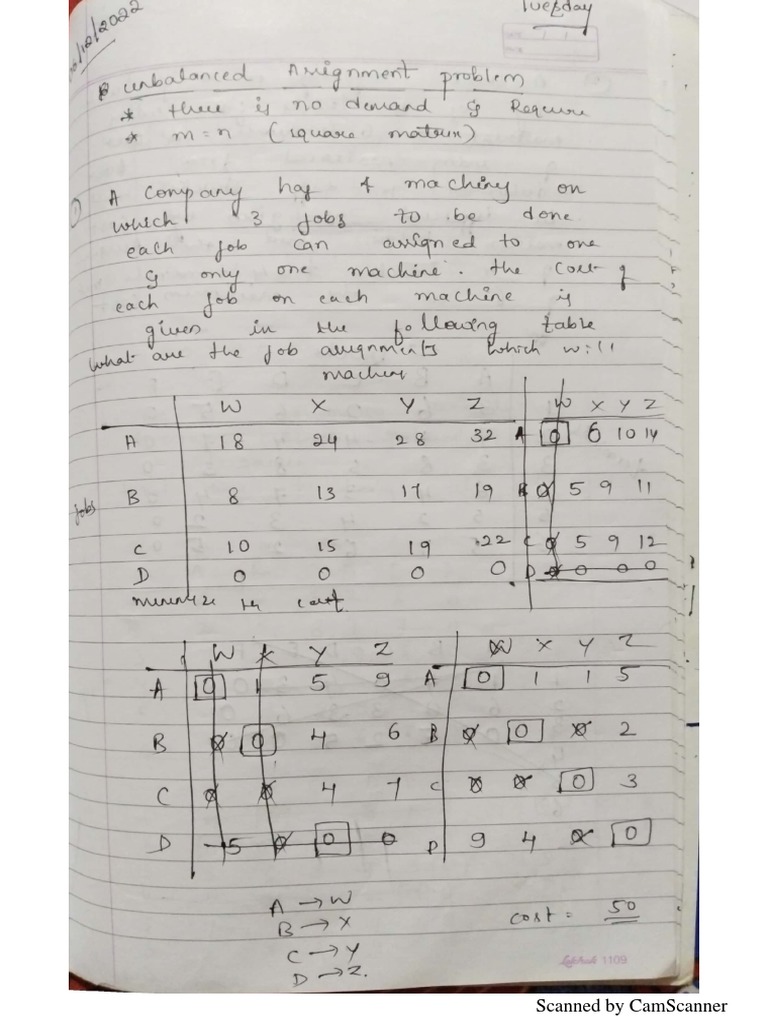 /12/2022
Tuesday
unbalanced Assignment problem
* there is no demand & Requere
* m = n (square matrix)
1) A company has 4 machines on
which 3 jobs to be done
each job can assigned to one
& only one machine. the cost of
each job on each machine is
given in the following table
What are the job assignments which will
machine
W X Y Z W X Y Z
A 18 24 28 32 A 0 6 10 14
Jobs B 8 13 17 19 B 0 5 9 11
C 10 15 19 22 C 0 5 9 12
D 0 0 0 0 D 0 0 0 0
minimize the cost
W X Y Z W X Y Z
A 0 1 5 9 A 0 1 1 5
B 0 0 4 6 B 0 0 0 2
C 0 0 4 7 C 0 0 0 3
D 5 0 0 0 D 9 4 0 0
A → W
B → X cost = 50
C → Y
D → Z.
1109
Scanned by CamScanner